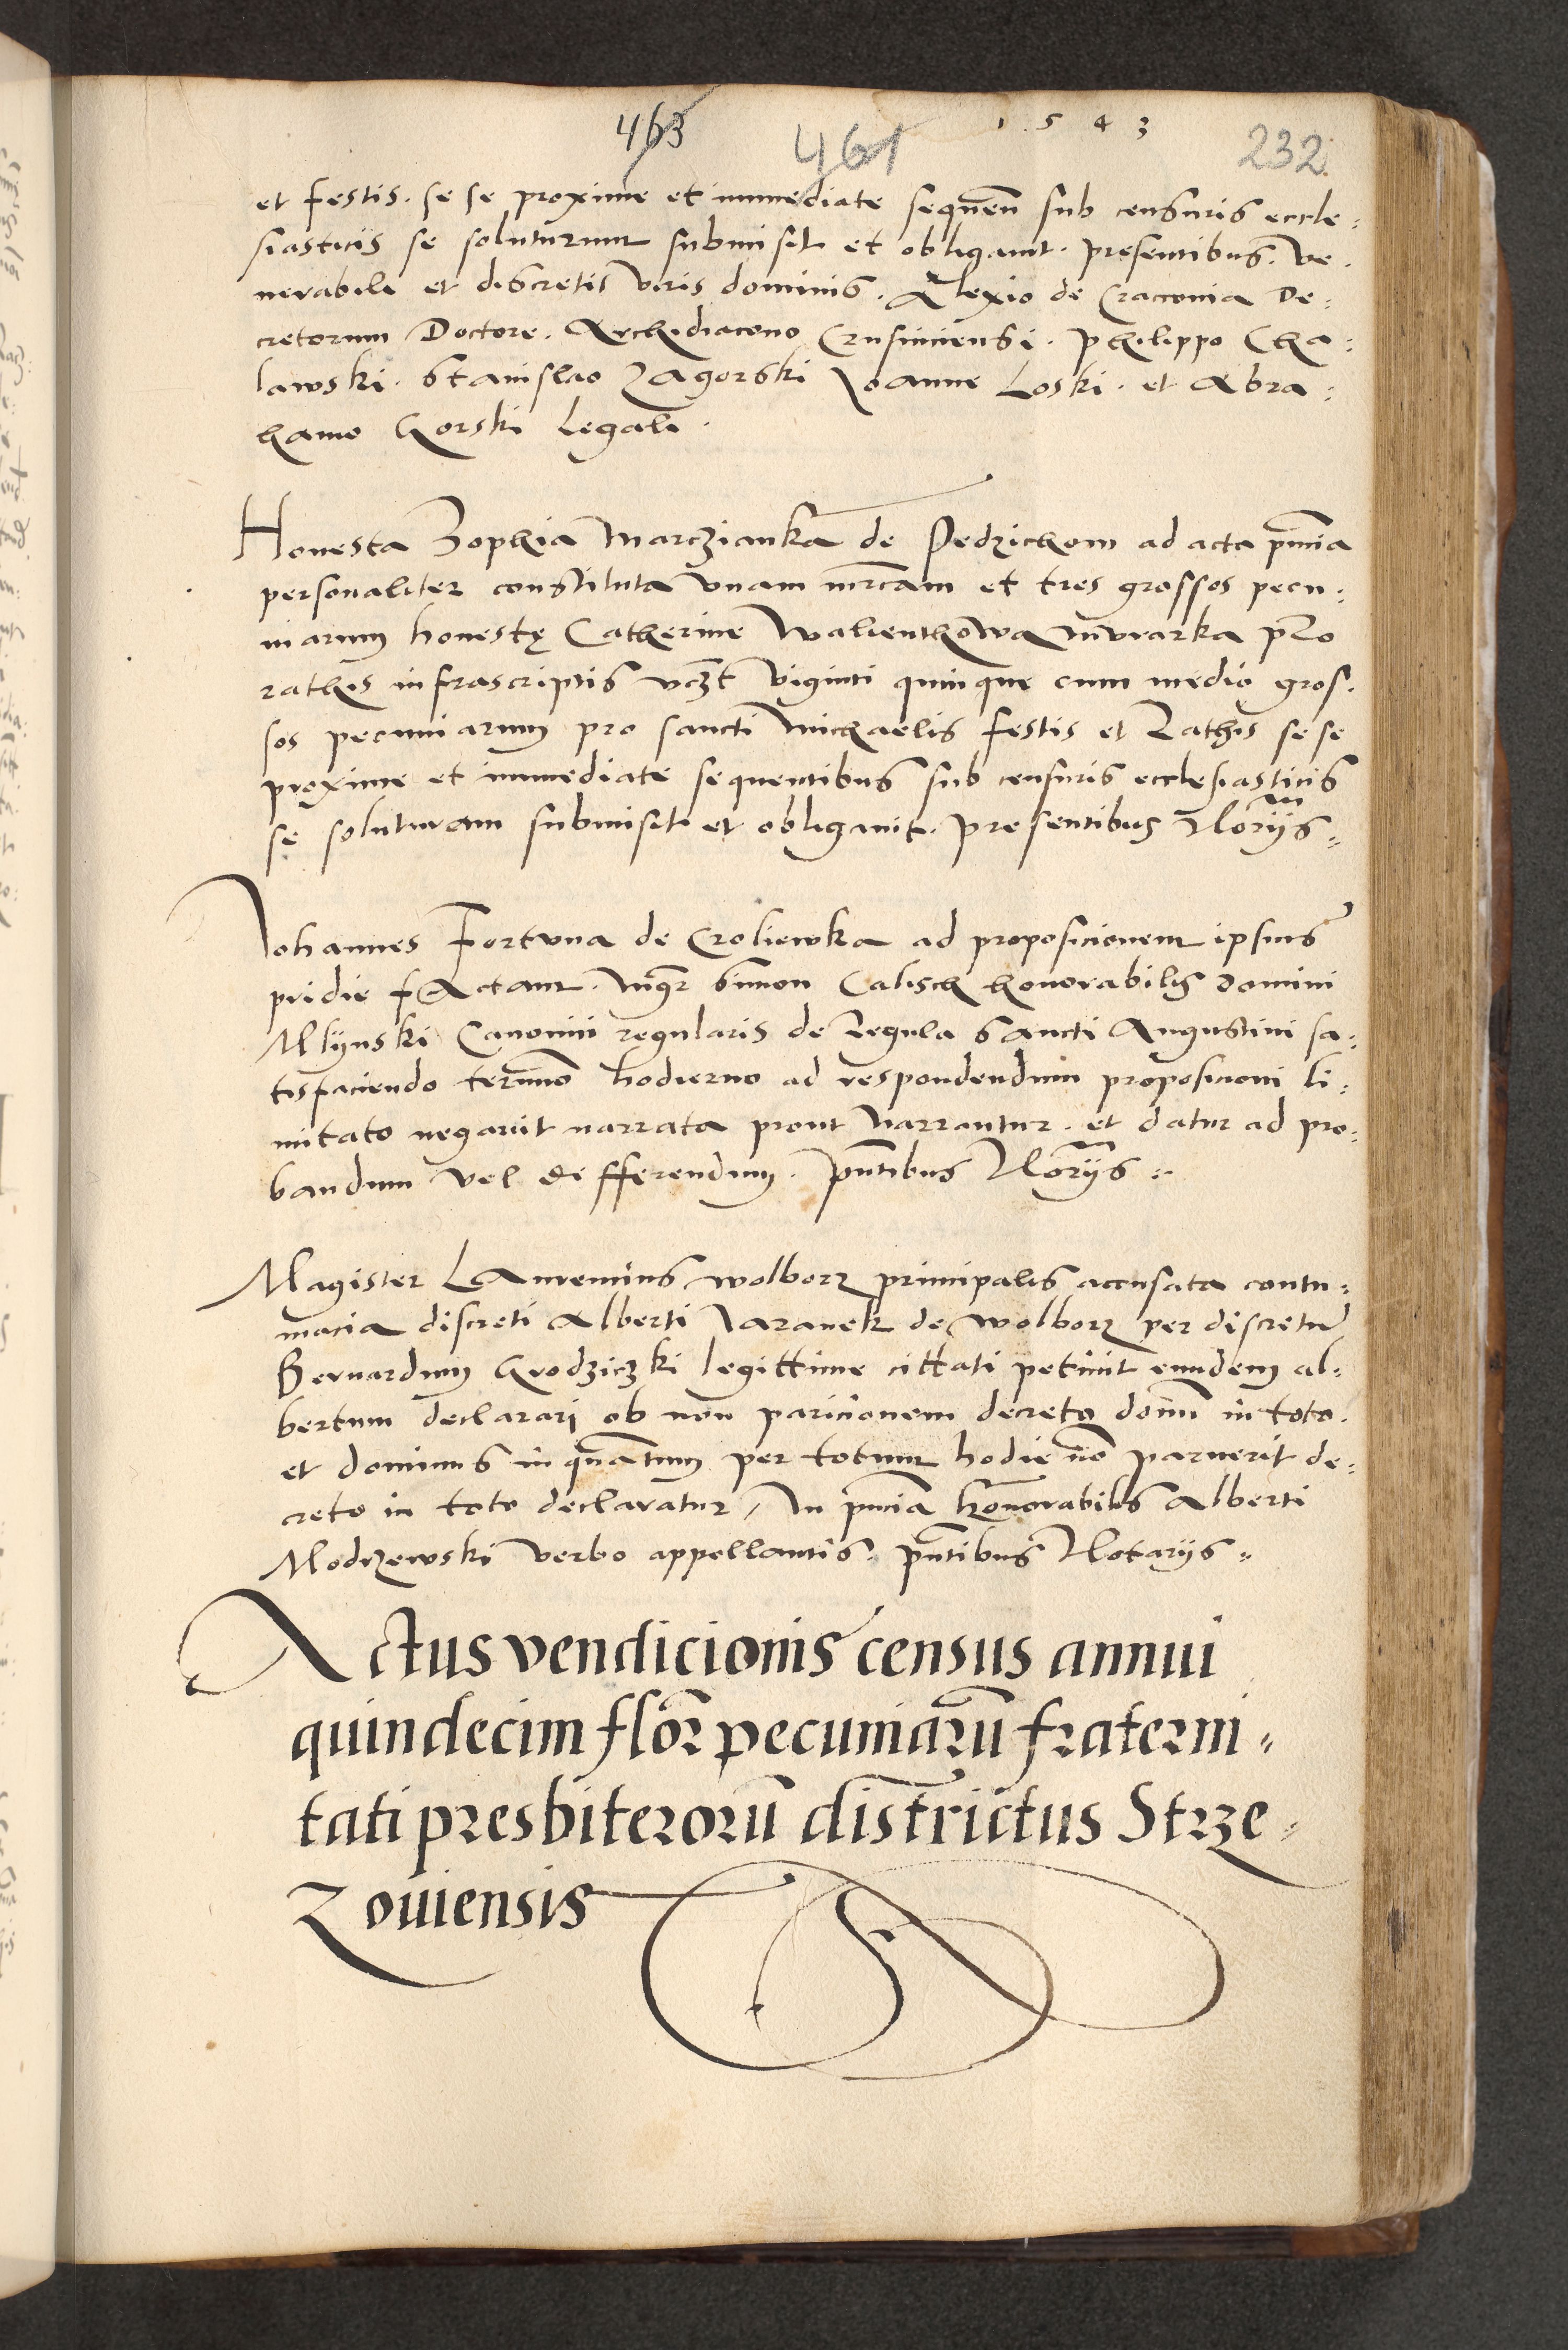 463 461 1543 232
et festis. se se proxime et immediate sequen̄ sub censuris eccle:
siasticis se soluturum submisit et obligavit. presentibus. ve.
nerabili et discretis viris dominis. Alexio de Cracovia De:
cretorum Doctore. Archidiacono Crusviciensi. Philippo Cha:
lawski. Stanislao Zagorski Joanne Loski. et Abra:
hamo Gorski Legali.
Honesta Zophia Marczianka de Pedzichow ad acta pn̄cia
personaliter constituta vnam mr̄cam et tres grossos pecu:
niarum honestę Catherine Walienthowa Mvrarka pro
rathis infrascriptis vcz̄t viginti quinque cum medio gros.
sos pecuniarum pro sancti Michaelis festis et Rathis se se
proxime et immediate sequentibus sub censuris ecclesiasticis
se soluturam submisit et obligavit. presentibus Norijs.
Johannes Fortvna de Croliewka ad proposicionem ipsius
pridie fActam. Mgr̄ Simon Calisch honorabilis domini
Mlynski Canonici regularis de regula Sancti Augustini sa:
tisfaciendo termino hodierno ad respondendum proposicioni li:
mitato negavit narrata prout Narrantur. et datur ad pro:
bandum vel defferendum. pn̄tibus Norijs.
Magister LAurencius Wolborz principalis accusata contu:
macia discreti Alberti Jaranek de Wolborz per discretū
Bernardum Grodziczki legittime cittati petiuit eundem al:
bertum declarari ob non paricionem decreto domī in toto.
et dominus in quantum per totum hodie nō paruerit de:
creto in toto declaratur, In pn̄cia honorabilis Alberti
Modrzewski verbo appellantis. pn̄tibus Notarijs.
Actus vendicionis census annui
quindecim flor̄ pecuniarū fraterni:
tati presbiterorū districtus Strze:
Zoviensis